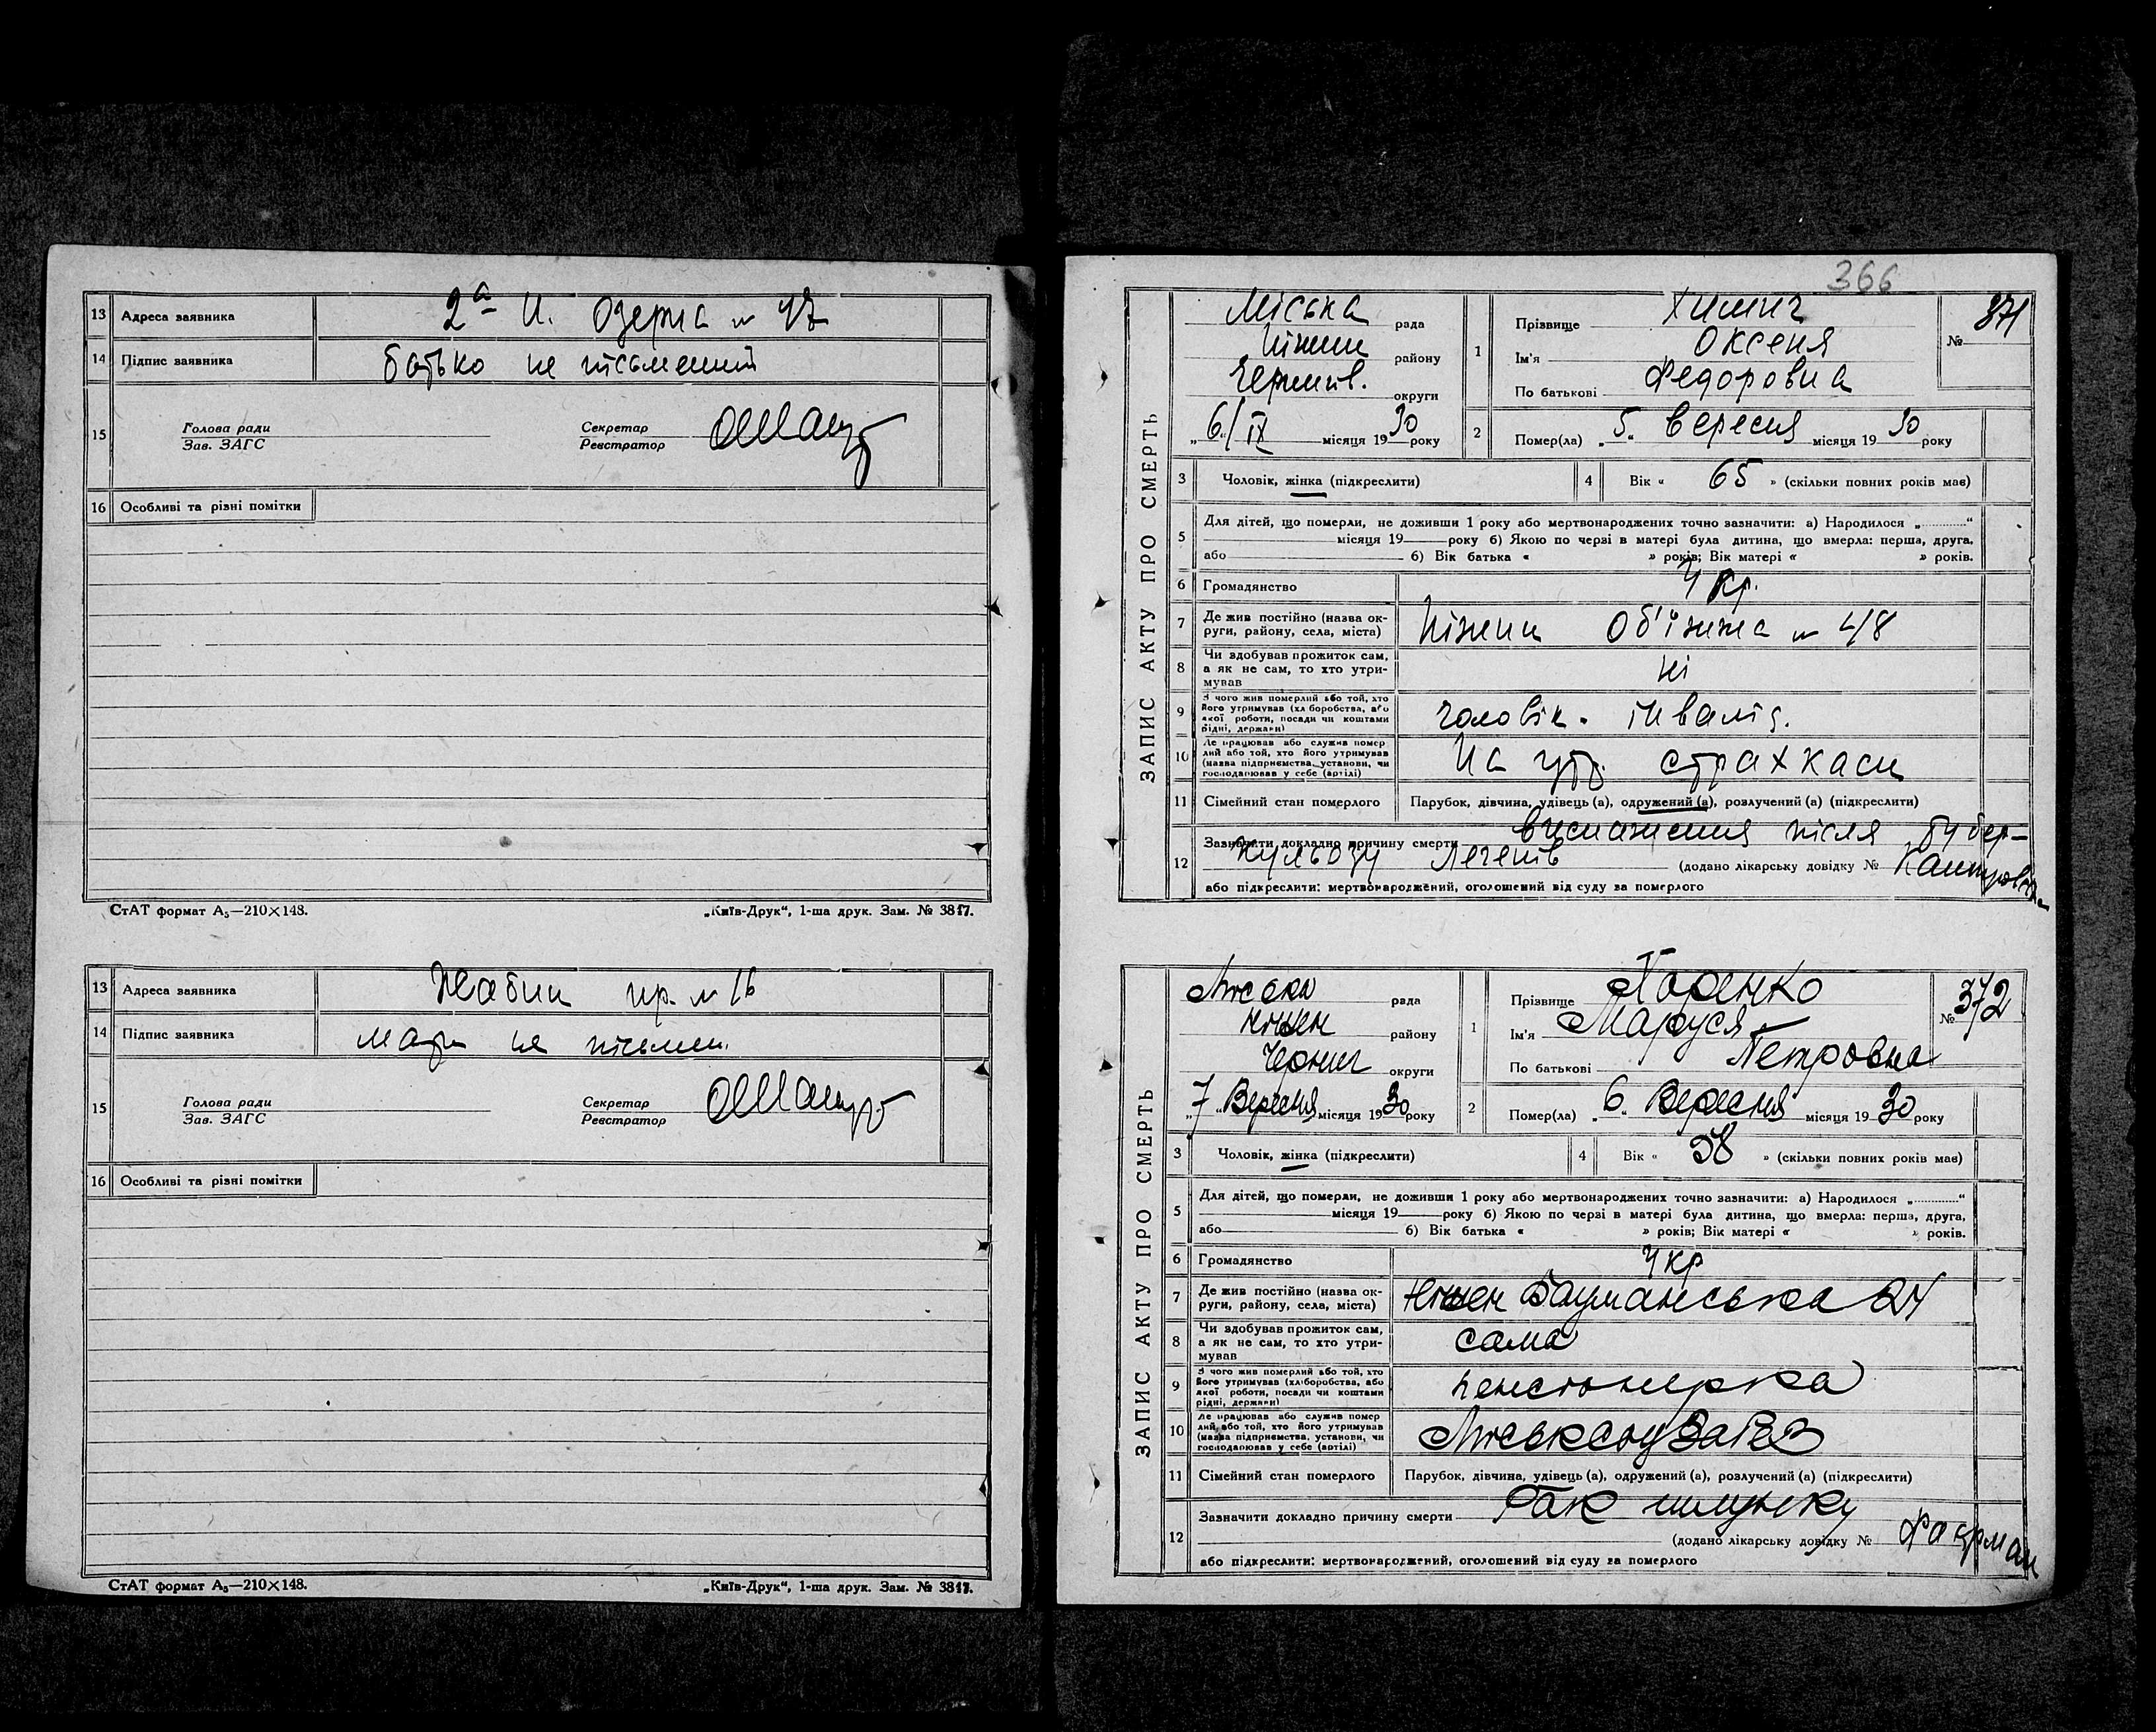 13 Адреса заявника 2а Н. Озерна № 47
14 Підпис заявника батько не письменний
15 Голова ради
Зав. ЗАГС
Секретар
Реєстратор
16 Особливі та різні помітки
СтАТ формат А₅—210×148. „Київ-Друк“, 1-ша друк. Зам. № 3817.
13 Адреса заявника пр. № 16
14 Підпис заявника мати не письмен.
15 Голова ради
Зав. ЗАГС
Секретар
Реєстратор
16 Особливі та різні помітки
СтАТ формат А₅—210×148. „Київ-Друк“, 1-ша друк. Зам. № 3817.
366
ЗАПИС АКТУ ПРО СМЕРТЬ
Міська рада
Ніжин району
Чернигів. округи
„6“/IX місяця 1930 року
1 Прізвище Химич
Ім'я Оксеня
По батькові Федоровна
№ 371
2 Помер(ла) „5“ вересня місяця 1930 року
3 Чоловік, жінка (підкреслити)
4 Вік « 65 » (скільки повних років має)
5 Для дітей, що померли, не доживши 1 року або мертвонароджених точно зазначити: а) Народилося „............“
місяця 19 року б) Якою по черзі в матері була дитина, що вмерла: перша, друга,
або б) Вік батька « » років; Вік матері « » років.
6 Громадянство Укр.
7 Де жив постійно (назва ок-
руги, району, села, міста) Ніжин Об'їжжа № 48
8 Чи здобував прожиток сам,
а як не сам, то хто утри-
мував ні
9 З чого жив померлий або той, хто
його утримував (хліборобства, або
якої роботи, посади чи коштами
рідні, держави) чоловік. інвалід.
10 Де працював або служив помер
лий або той, хто його утримував
(назва підприємства, установи, чи
господарював у себе (артілі) На утр. страхкаси
11 Сімейний стан померлого Парубок, дівчина, удівець (а), одружений (а), розлучений (а) (підкреслити)
12 Зазначити докладно причину смерти виснаження після тубер-
кульозу легенів (додано лікарську довідку №
або підкреслити: мертвонароджений, оголошений від суду за померлого
ЗАПИС АКТУ ПРО СМЕРТЬ
рада
Ніжен району
Черниг округи
„7“ Вересня місяця 1930 року
1 Прізвище
Ім'я Маруся
По батькові Петровна
№ 372
2 Помер(ла) „6“ Вересня місяця 1930 року
3 Чоловік, жінка (підкреслити)
4 Вік « 58 » (скільки повних років має)
5 Для дітей, що померли, не доживши 1 року або мертвонароджених точно зазначити: а) Народилося „............“
місяця 19 року б) Якою по черзі в матері була дитина, що вмерла: перша, друга,
або б) Вік батька « » років; Вік матері « » років.
6 Громадянство Укр
7 Де жив постійно (назва ок-
руги, району, села, міста) Ніжен Бауманська 24
8 Чи здобував прожиток сам,
а як не сам, то хто утри-
мував сама
9 З чого жив померлий або той, хто
його утримував (хліборобства, або
якої роботи, посади чи коштами
рідні, держави) пенсіонерка
10 Де працював або служив помер
лий або той, хто його утримував
(назва підприємства, установи, чи
господарював у себе (артілі)
11 Сімейний стан померлого Парубок, дівчина, удівець (а), одружений (а), розлучений (а) (підкреслити)
12 Зазначити докладно причину смерти Рак шлунку
(додано лікарську довідку №
або підкреслити: мертвонароджений, оголошений від суду за померлого